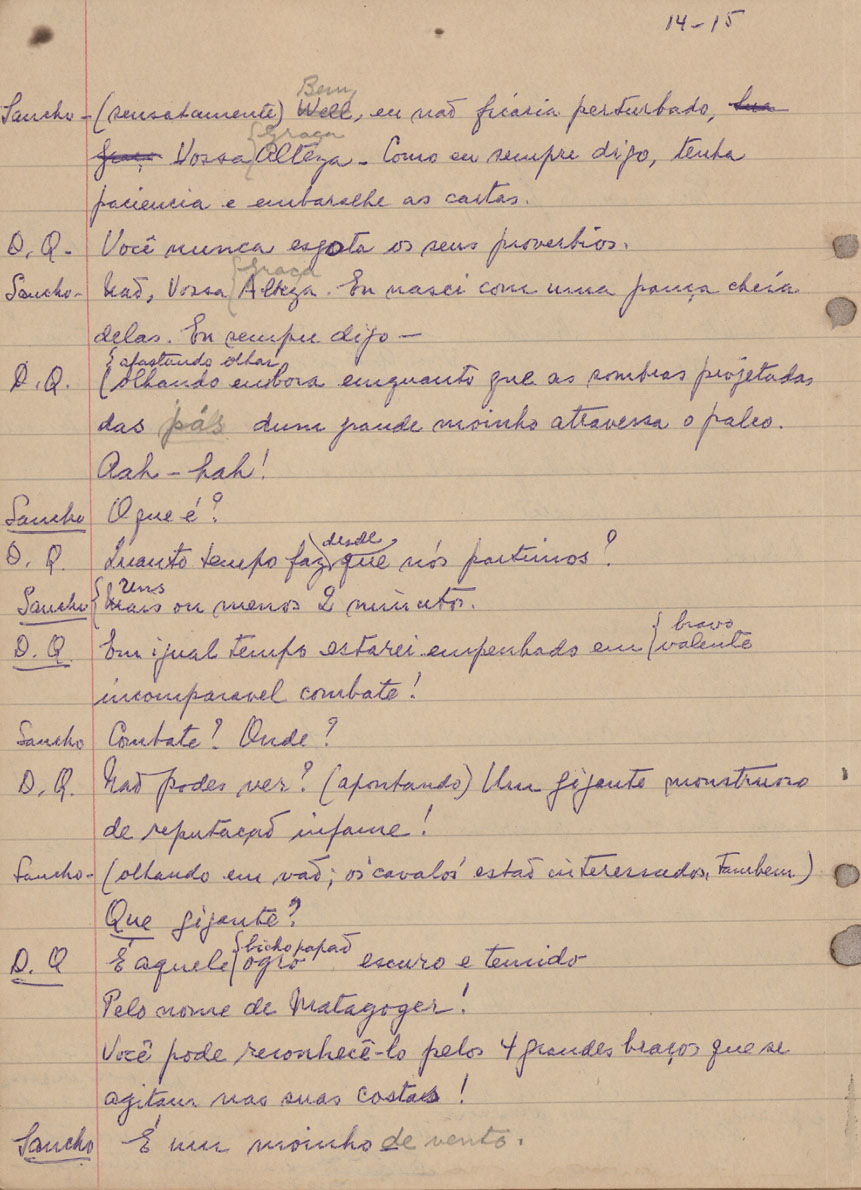 14-15
Bem,
Sancho - (sensatamente) Well, eu não ficaria perturbado, Sua
{Graça
Graça Vossa {Alteza - Como eu sempre digo, tenha
paciencia e embaralhe as cartas.
D. Q. - Você nunca esgota os seus proverbios.
{Graça
Sancho - Não, Vossa {Alteza. Eu nasci com uma pança cheia
delas. Eu sempre digo —
{afastando olhar
D. Q. (olhando embora emquanto que as sombras projetadas
das pás dum grande moinho atravessa o palco.
Aah - hah!
Sancho O que é?
desde
D. Q. Quanto tempo faz que nós partimos?
uns
Sancho {Mais ou menos 2 minutos.
bravo
D. Q. Em igual tempo estarei empenhado em {valente
incomparavel combate!
Sancho Combate? Onde?
D. Q. Não podes ver? (apontando) Um gigante monstruoso
de reputação infame!
Sancho - (olhando em vão; os "cavalos" estão interessados, tambem)
Que gigante?
{bicho papão
D. Q É aquele {ogro escuro e temido
Pelo nome de Matagoger!
Você pode reconhecê-lo pelos 4 grandes braços que se
agitam nas suas costas!
Sancho É um moinho de vento.